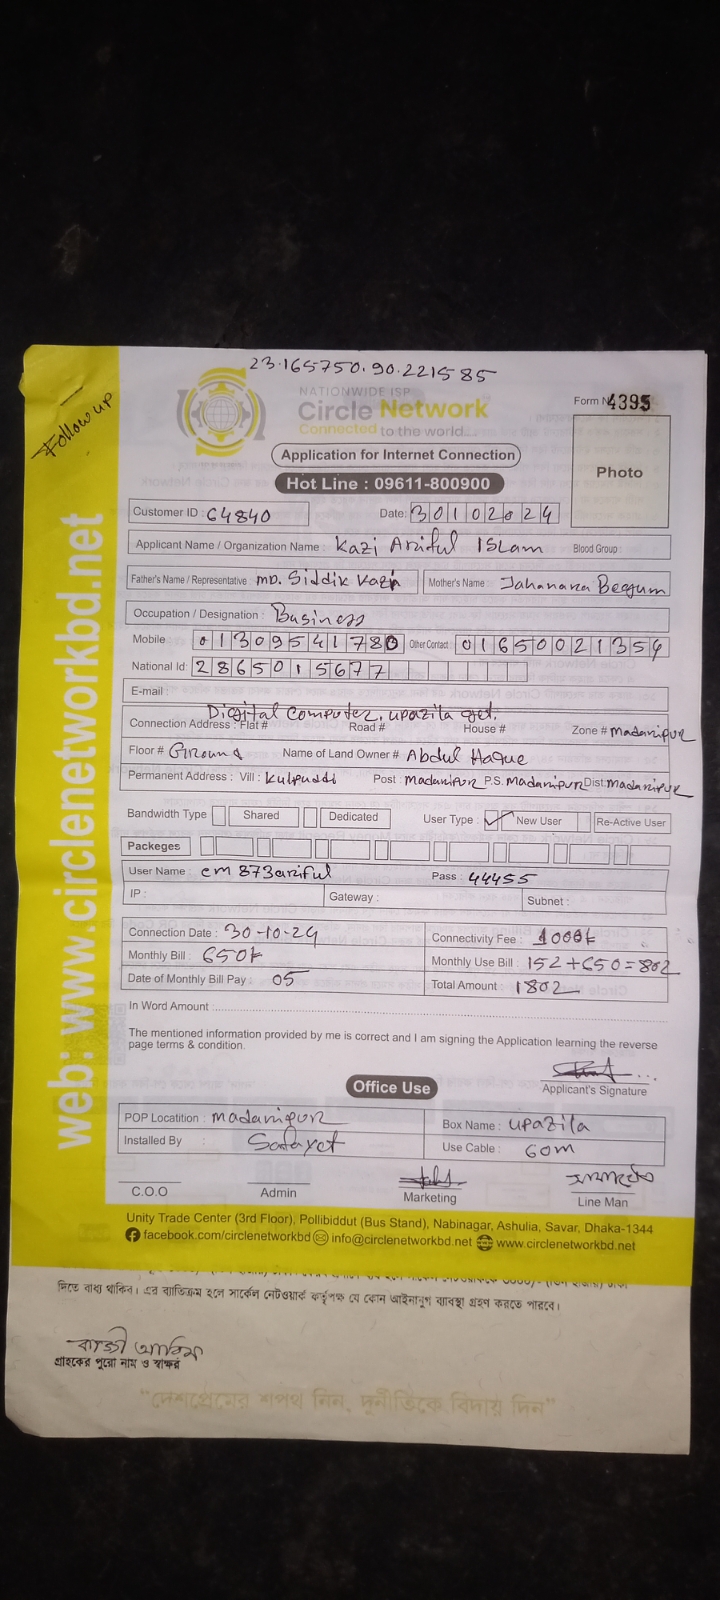 23.165750.90.221585
Follow up
NATIONWIDE ISP
Circle Network
Connected to the world...
Form No 4395
Application for Internet Connection
Photo
Hot Line : 09611-800900
Customer ID : 64840 Date: 30102024
Applicant Name / Organization Name : Kazi Ariful ISLam Blood Group
Father's Name / Representative MD. Siddik Kazi Mother's Name : Jahanara Begum
Occupation / Designation : Business
Mobile 01309541780 Other Contact : 01650021354
National Id: 2865015677
E-mail :
Digital computer, upazila get.
Connection Address : Flat # Road # House # Zone # Madaripur
Floor # Ground Name of Land Owner # Abdul Haque
Permanent Address : Vill : Kulpuddi Post : Madaripur P.S. Madaripur Dist: Madaripur
Bandwidth Type Shared Dedicated User Type : ✓ New User Re-Active User
Packeges
User Name : cm873ariful Pass : 44455
IP : Gateway : Subnet :
Connection Date : 30-10-24 Connectivity Fee : 1000৳
Monthly Bill : 650৳ Monthly Use Bill : 152+650=802
Date of Monthly Bill Pay : 05 Total Amount : 1802
In Word Amount
The mentioned information provided by me is correct and I am signing the Application learning the reverse
page terms & condition.
Office Use
Applicant's Signature
POP Locatition : Madaripur Box Name : upazila
Installed By : Safayet Use Cable : 60m
C.O.O Admin Marketing Line Man
Unity Trade Center (3rd Floor), Pollibiddut (Bus Stand), Nabinagar, Ashulia, Savar, Dhaka-1344
facebook.com/circlenetworkbd info@circlenetworkbd.net www.circlenetworkbd.net
web: www.circlenetworkbd.net
দিতে বাধ্য থাকিব। এর ব্যাতিক্রম হলে সার্কেল নেটওয়ার্ক কর্তৃপক্ষ যে কোন আইনানুগ ব্যাবস্থা গ্রহণ করতে পারবে।
কাজী আরিফ
গ্রাহকের পুরো নাম ও স্বাক্ষর
“দেশপ্রেমের শপথ নিন, দুর্নীতিকে বিদায় দিন”